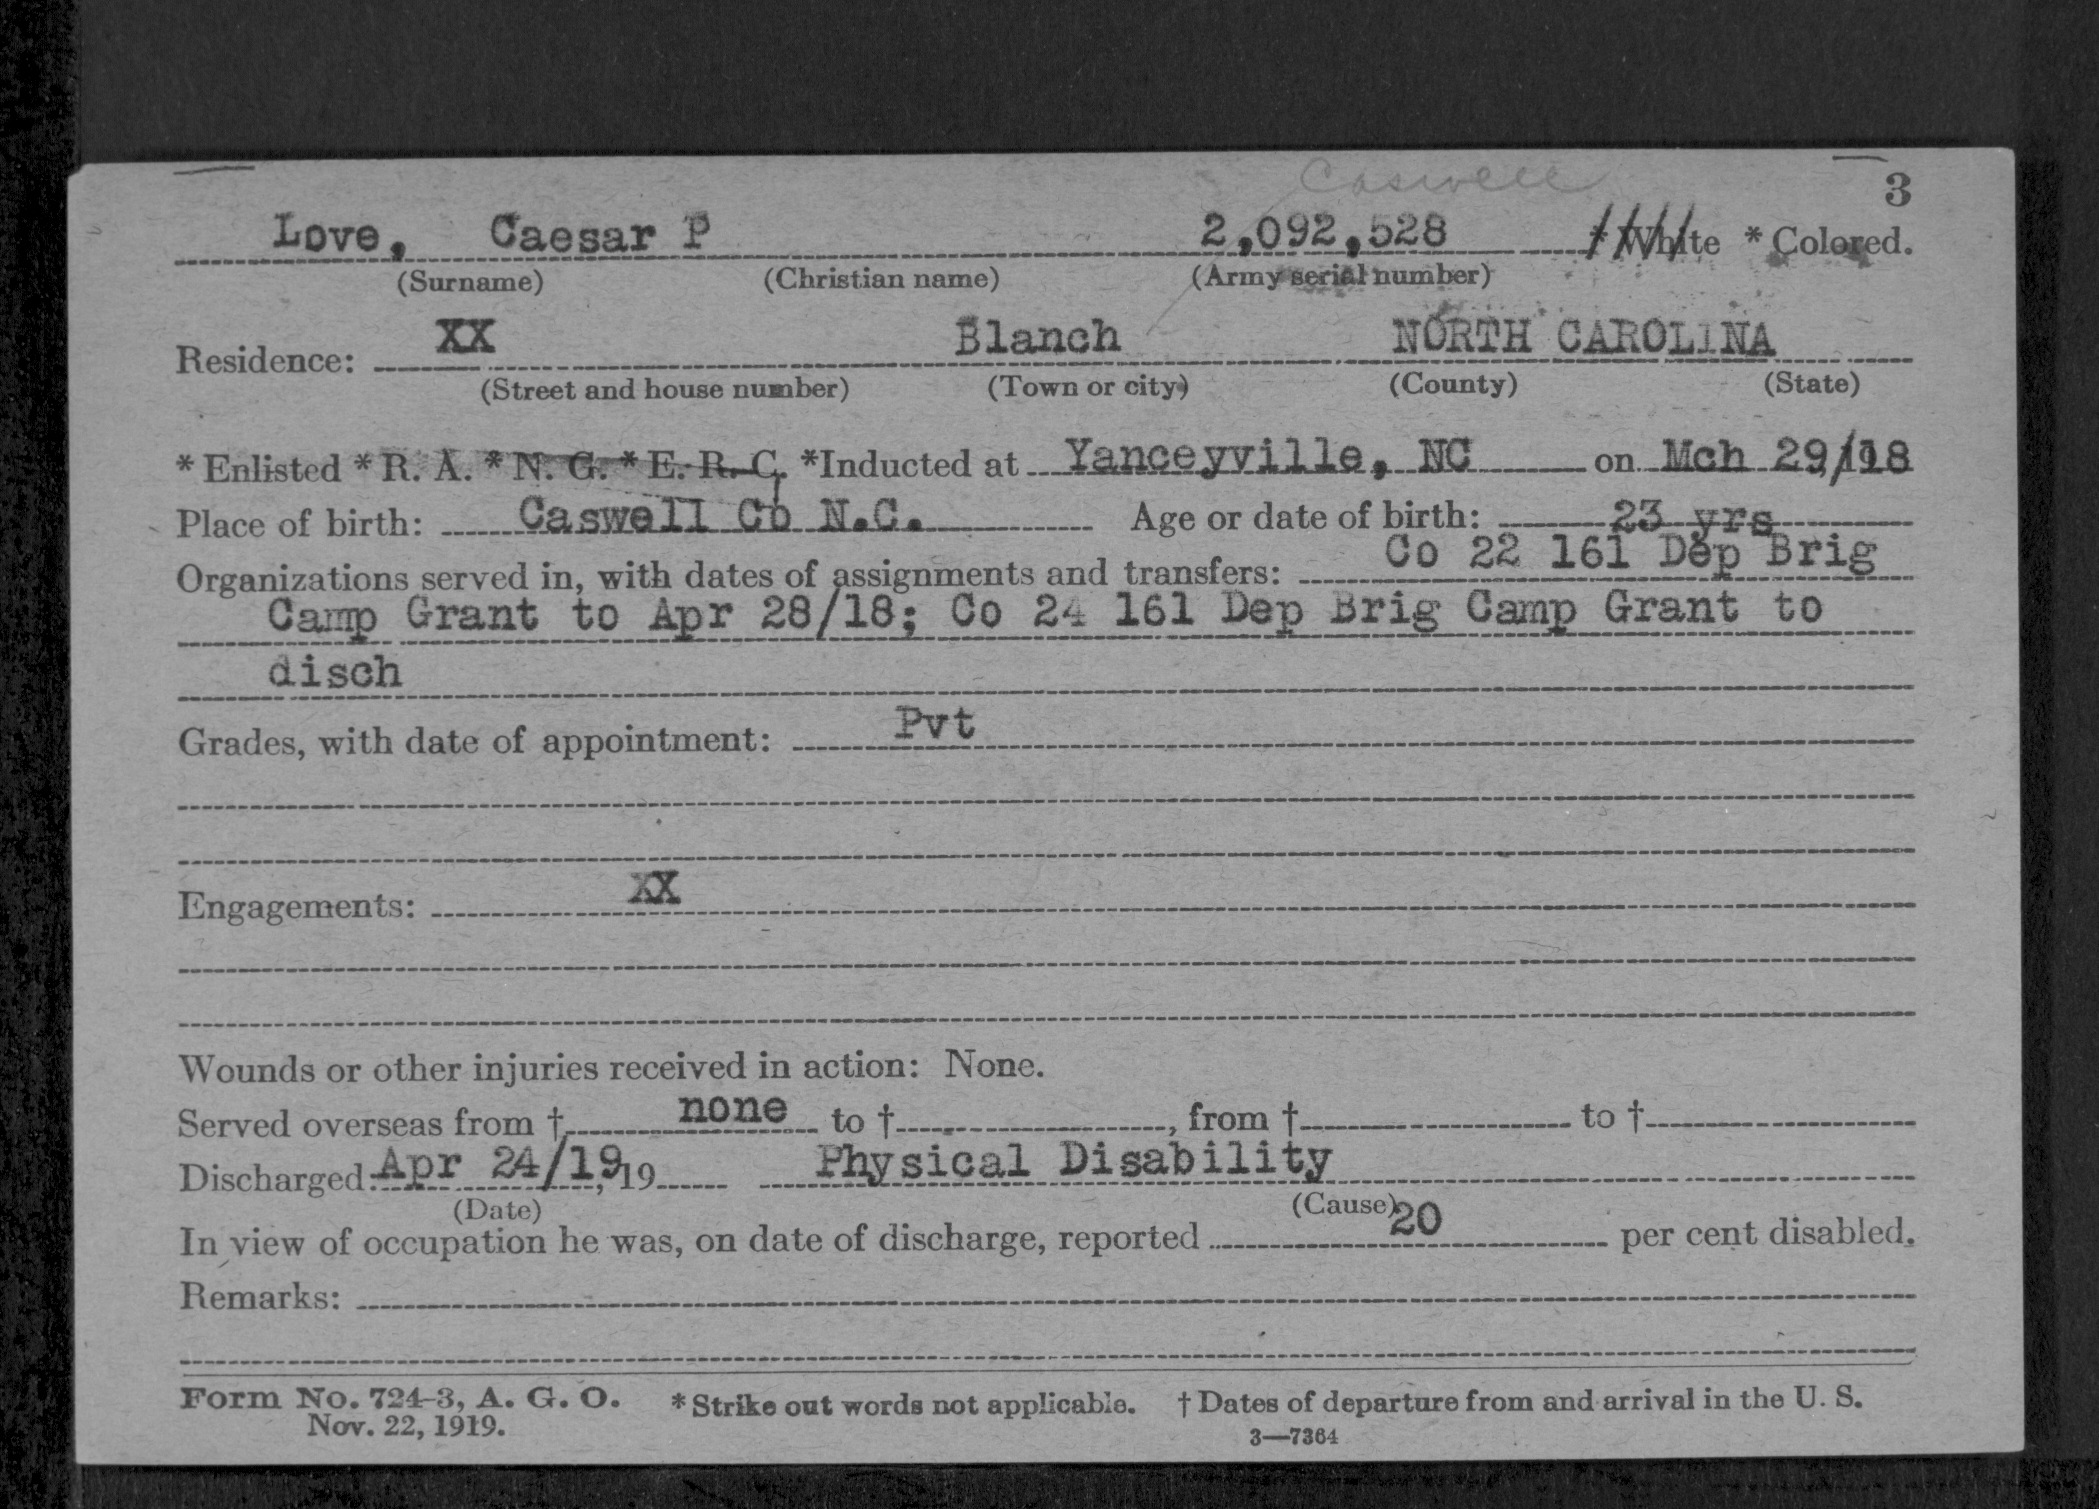 Caswell
3
Love, Caesar P 2,092,528 * White * Colored.
(Surname) (Christian name) (Army serial number)
Residence: XX Blanch NORTH CAROLINA
(Street and house number) (Town or city) (County) (State)
* Enlisted * R. A. * N. G. * E. R. C. *Inducted at Yanceyville, NC on Mch 29/18
Place of birth: Caswell Co N.C. Age or date of birth: 23 yrs
Organizations served in, with dates of assignments and transfers: Co 22 161 Dep Brig
Camp Grant to Apr 28/18; Co 24 161 Dep Brig Camp Grant to
disch
Grades, with date of appointment: Pvt
Engagements: XX
Wounds or other injuries received in action: None.
Served overseas from † none to †, from † to †
Discharged: Apr 24/19, 19 Physical Disability
(Date) (Cause)
In view of occupation he was, on date of discharge, reported 20 per cent disabled.
Remarks:
Form No. 724-3, A. G. O. * Strike out words not applicable. † Dates of departure from and arrival in the U. S.
Nov. 22, 1919. 3—7364